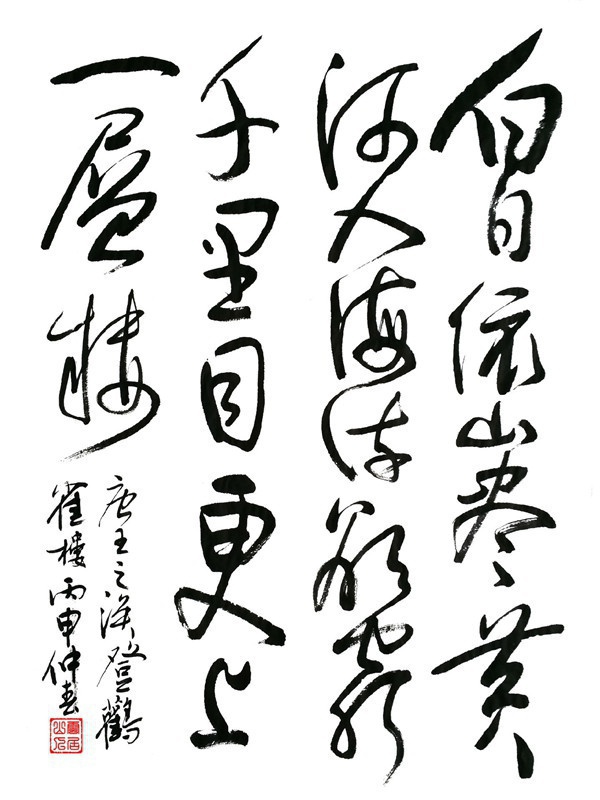 白日依山尽黄
河入海流欲穷
千里目更上
一层楼
唐王之涣登鹳
雀楼丙申仲春